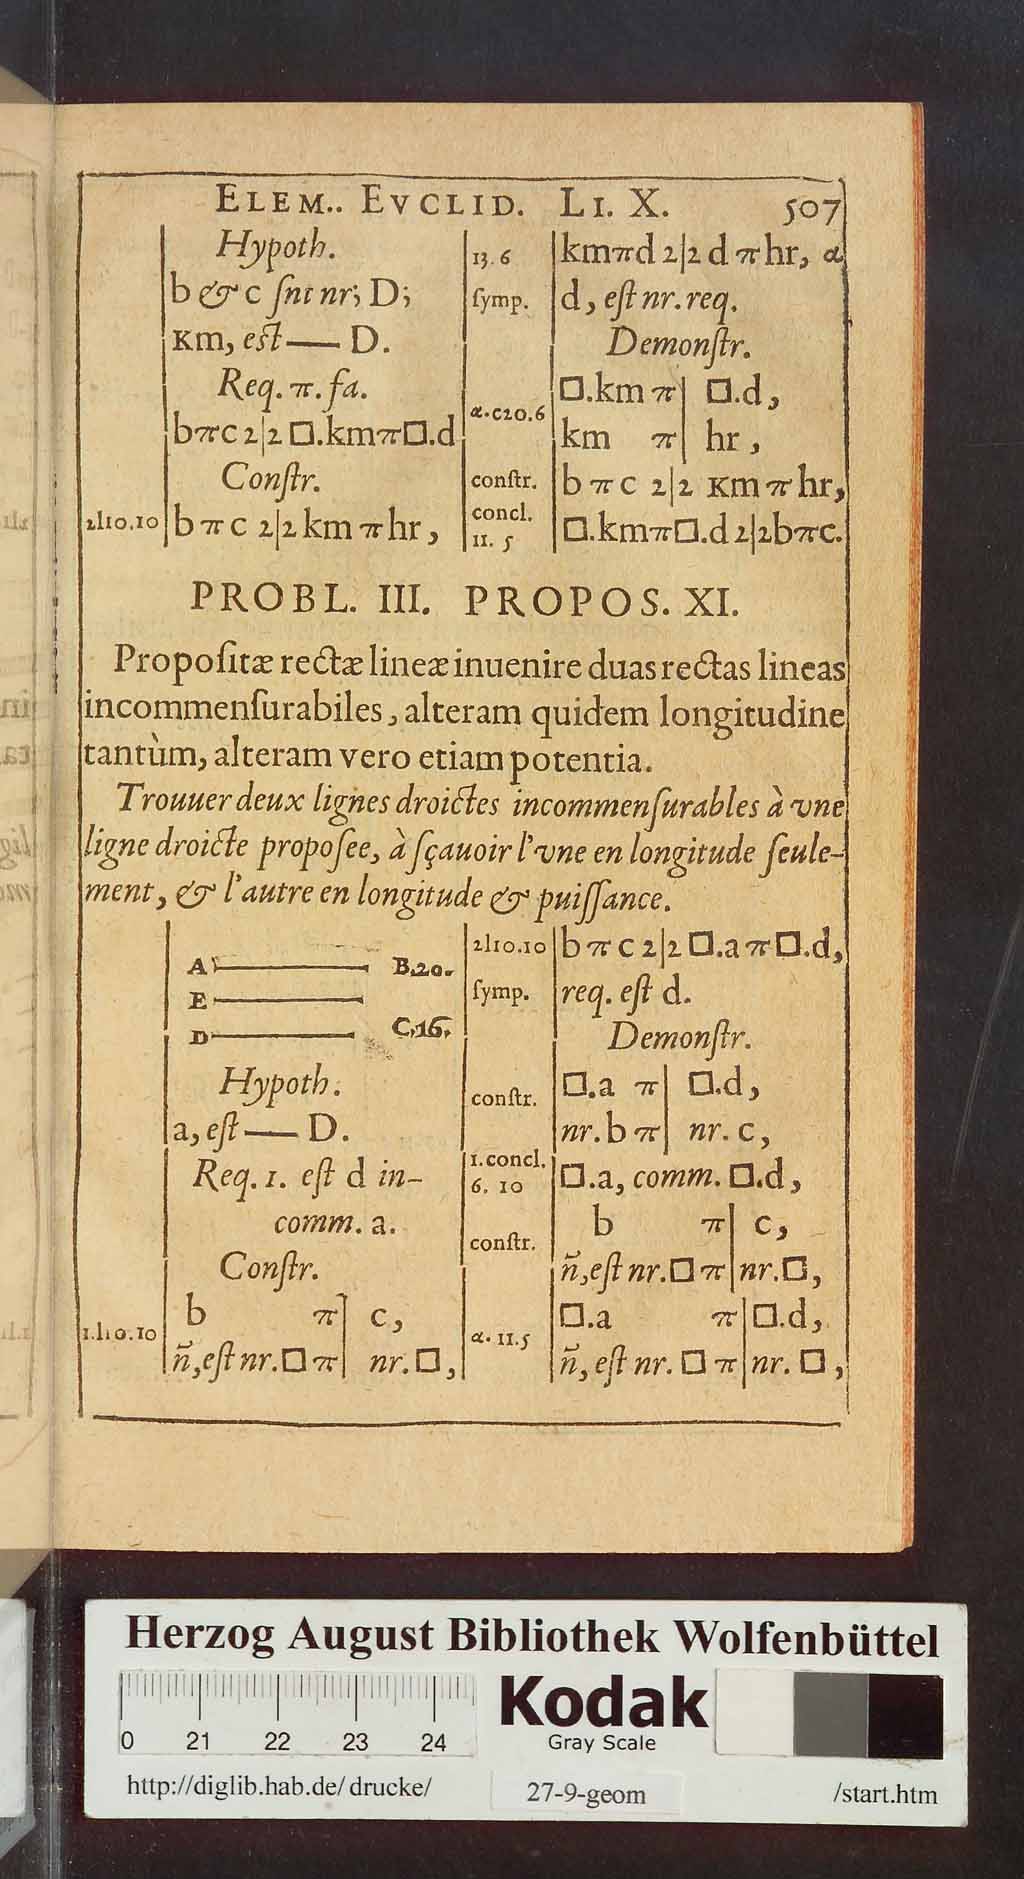 ELEM.. EVCLID. LI. X. 507
Hypoth.
b & c ſnt nr; D;
κm, eſt — D.
Req. π. fa.
bπc 2|2 □.kmπ□.d
Conſtr.
2l10.10 b π c 2|2 km π hr,
13.6 kmπd 2|2 d π hr, α
ſymp. d, eſt nr. req.
Demonſtr.
□.km π| □.d,
α.c20.6
km π| hr,
conſtr. b π c 2|2 κm π hr,
concl.
11. 5 □.kmπ□.d 2|2bπc.
PROBL. III. PROPOS. XI.
Propoſitæ rectæ lineæ inuenire duas rectas lineas
incommenſurabiles, alteram quidem longitudine
tantùm, alteram vero etiam potentia.
Trouuer deux lignes droictes incommenſurables à vne
ligne droicte propoſee, à ſçauoir l'vne en longitude ſeule-
ment, & l'autre en longitude & puiſſance.
A B.20.
E
D C.16.
Hypoth.
a, eſt — D.
Req. 1. eſt d in-
comm. a.
Conſtr.
b π| c,
1.l10.10
ñ, eſt nr. □ π| nr. □,
2l10.10 b π c 2|2 □.a π □.d,
ſymp. req. eſt d.
Demonſtr.
□.a π| □.d,
conſtr.
nr. b π| nr. c,
1.concl.
6. 10 □.a, comm. □.d,
b π| c,
conſtr.
ñ, eſt nr. □ π| nr. □,
□.a π| □.d,
α. 11.5
ñ, eſt nr. □ π| nr. □,
Herzog August Bibliothek Wolfenbüttel
0 21 22 23 24
Kodak
Gray Scale
http://diglib.hab.de/drucke/ 27-9-geom /start.htm